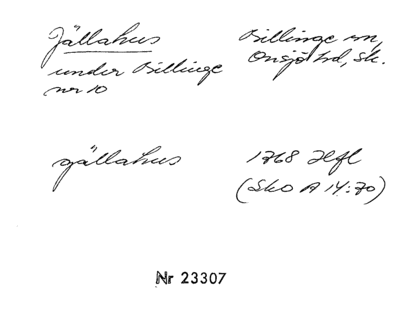 Jällahus
under Billinge
nr 10
Billinge sn,
Onsjö hd, Sk.
gällahus
1768 Hfl
(Sko A 14:70)
Nr 23307